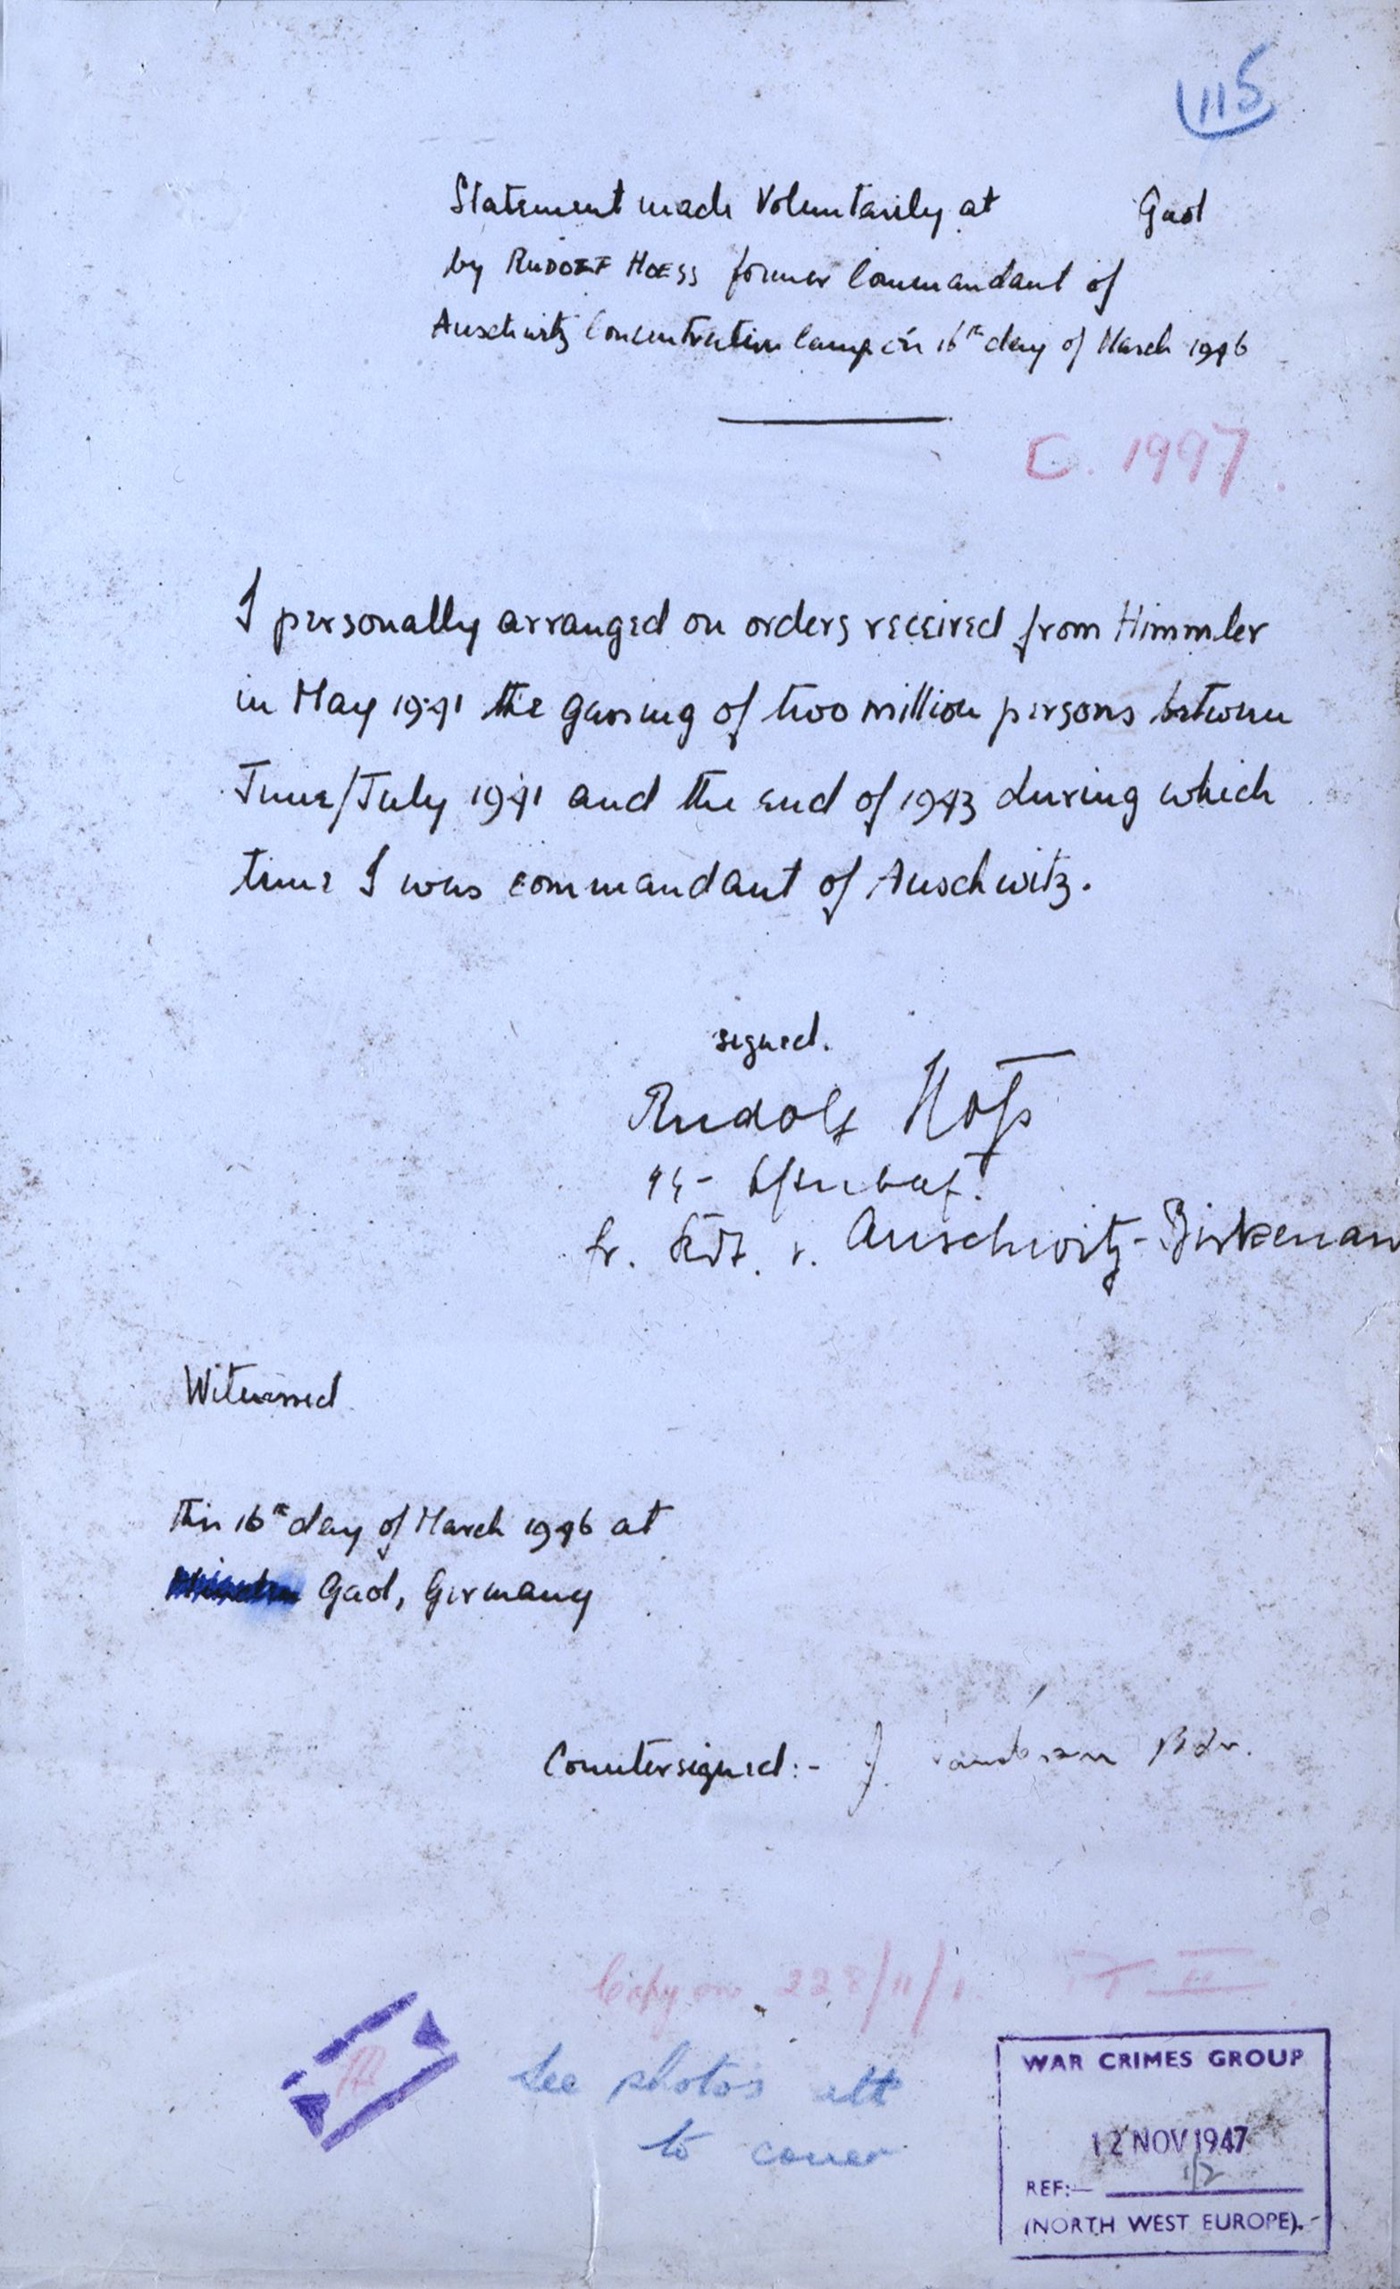 115
Statement made Voluntarily at Gaol
by RUDOLF HOESS former Commandant of
Auschwitz Concentration Camp on 16th day of March 1946
C. 1997.
I personally arranged on orders received from Himmler
in May 1941 the gassing of two million persons between
June/July 1941 and the end of 1943 during which
time I was commandant of Auschwitz.
signed.
Rudolf Höß
SS-
fr. Kdt. v. Auschwitz-Birkenau
Witnessed
This 16th day of March 1946 at
Gaol, Germany
Countersigned:- J. Bdr.
Copy on 228/11/1. PT II
See photos att
to cover
WAR CRIMES GROUP
12 NOV 1947
REF:-
(NORTH WEST EUROPE).